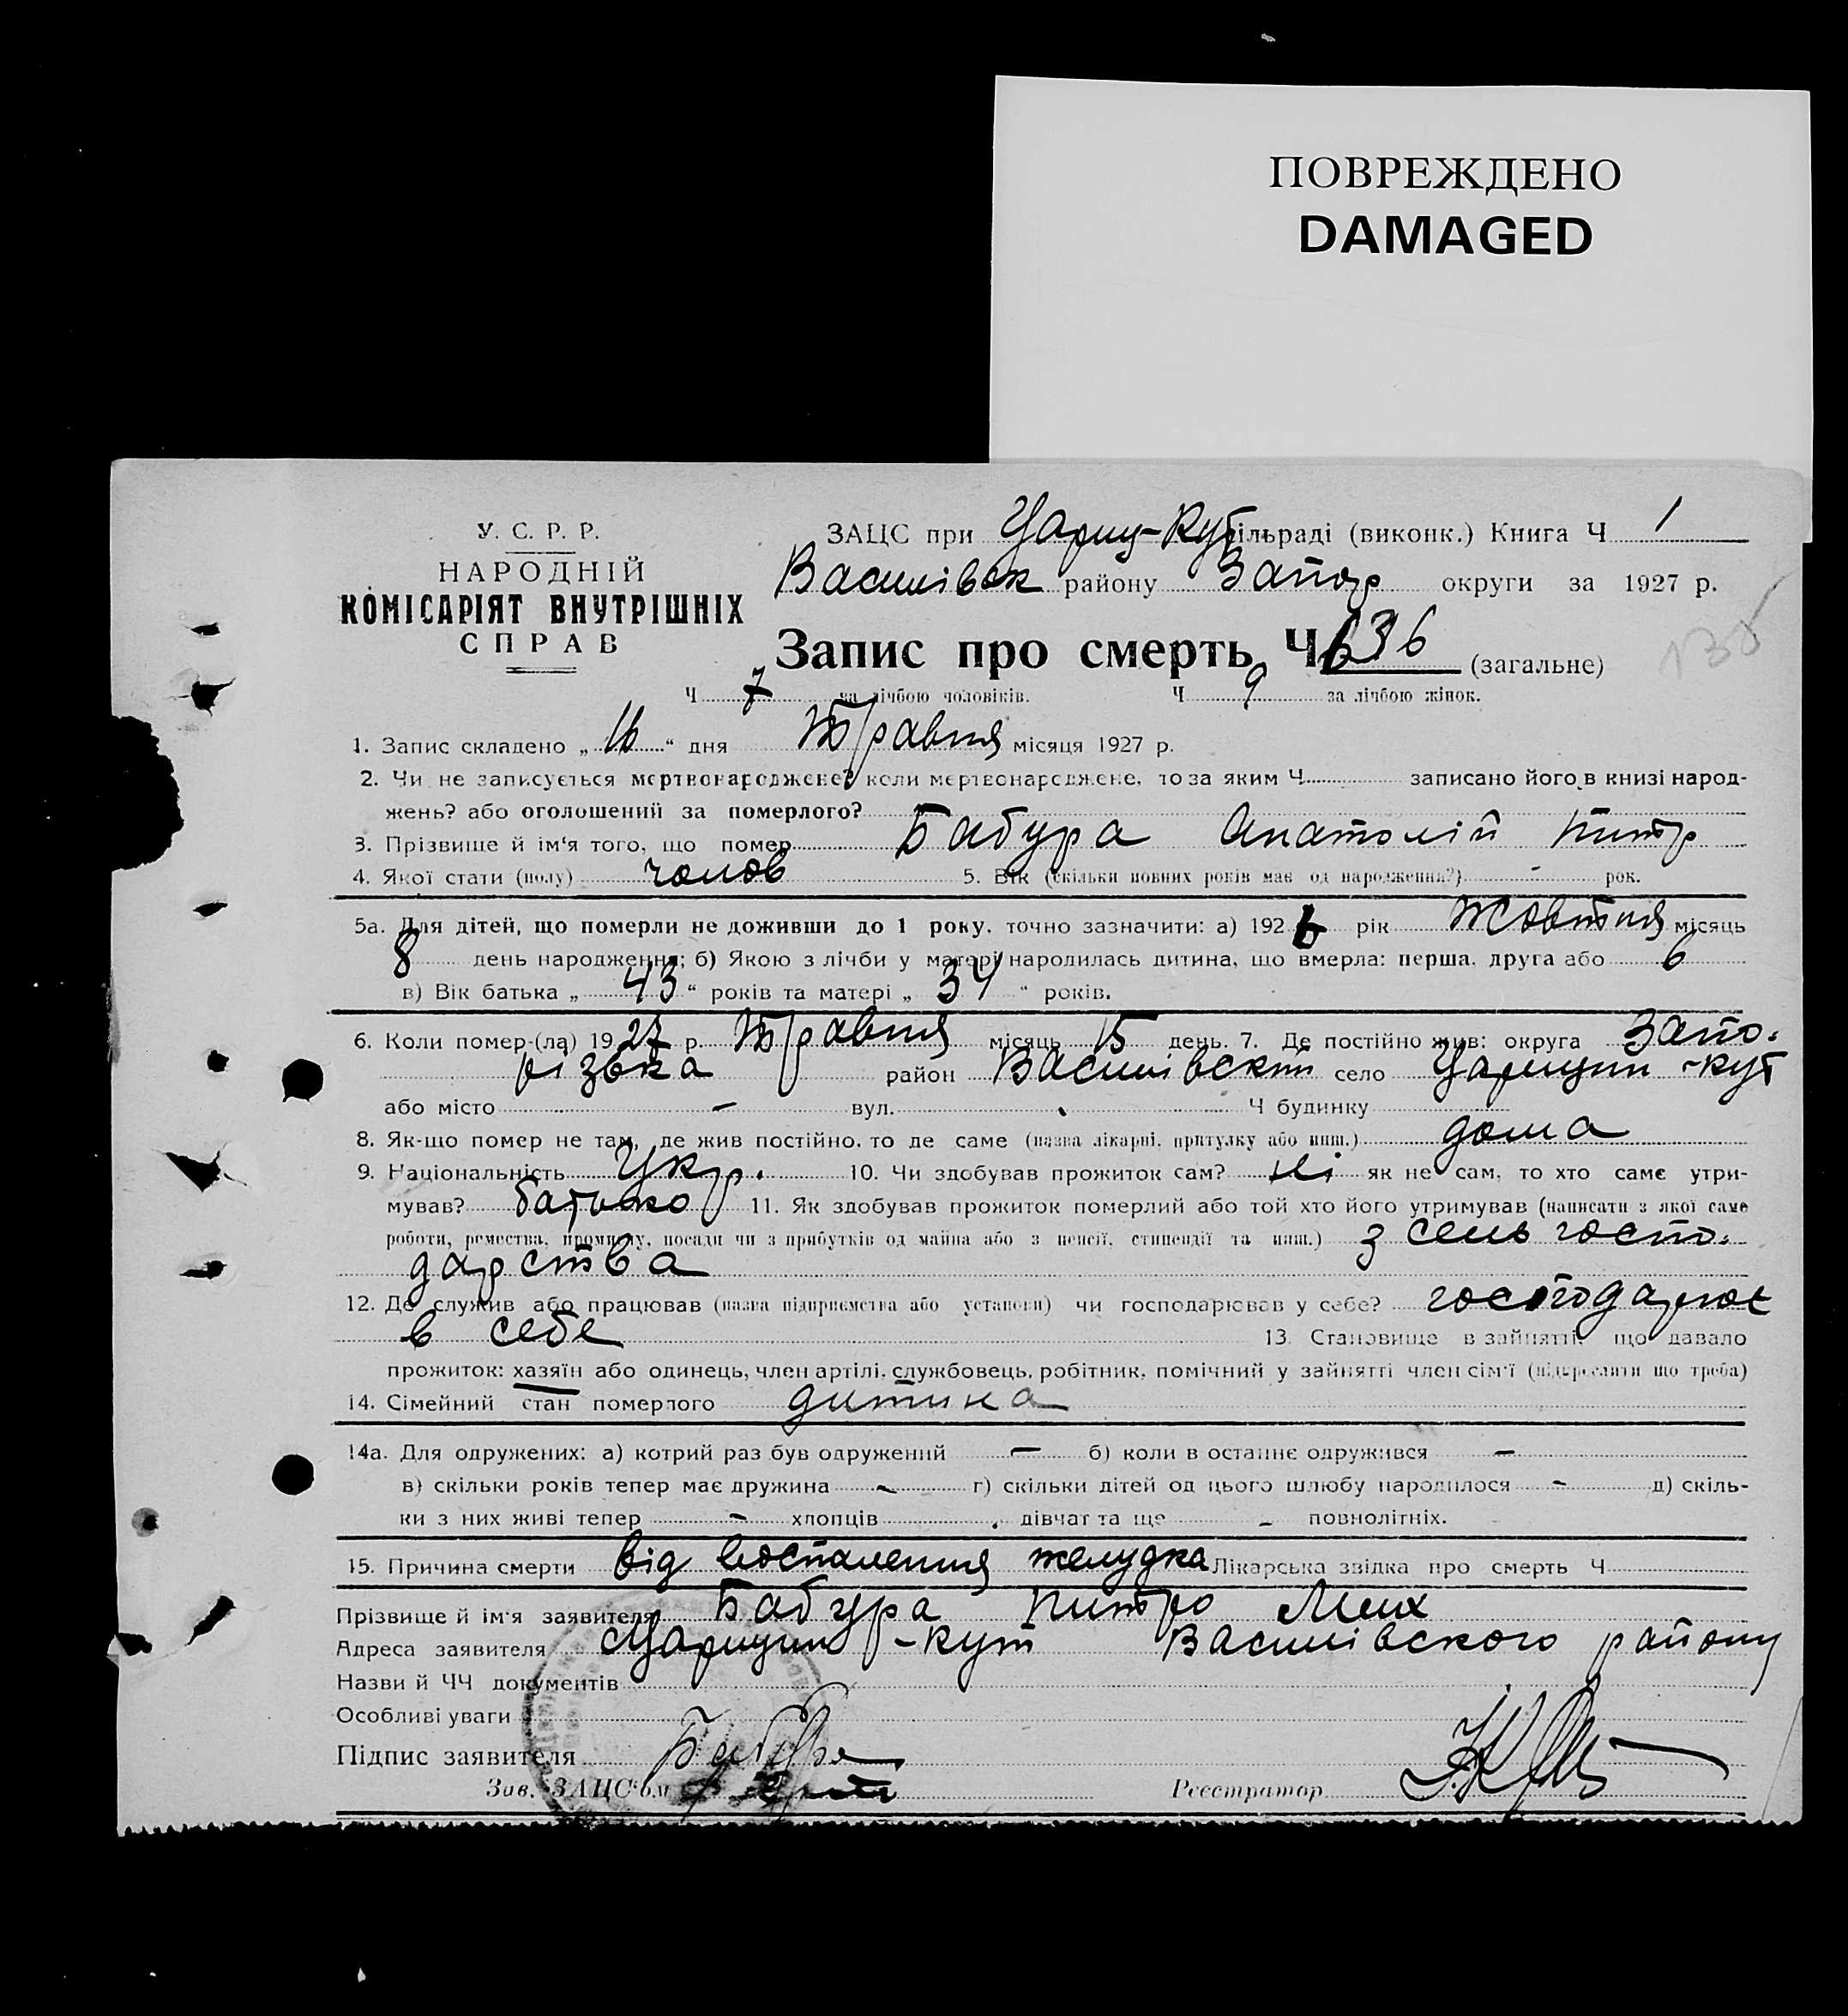 ПОВРЕЖДЕНО
DAMAGED
У. С. Р. Р.
НАРОДНІЙ
КОМІСАРІЯТ ВНУТРІШНІХ
СПРАВ
ЗАЦС при Цариц-Кут сільраді (виконк.) Книга Ч 1
Василівск району Запор округи за 1927 р.
Запис про смерть Ч 636 (загальне)
Ч 7 за лічбою чоловіків. Ч 9 за лічбою жінок.
1. Запис складено „16“ дня Травня місяця 1927 р.
2. Чи не записується мертвонароджене? коли мертвонароджене, то за яким Ч записано його в книзі народ-
жень? або оголошений за померлого?
3. Прізвище й ім'я того, що помер Бабура Анатолій Питр
4. Якої стати (полу) чолов 5. Вік (скільки повних років має од народження?) - рок.
5а. Для дітей, що померли не доживши до 1 року, точно зазначити: а) 1926 рік Жовтня місяць
8 день народження; б) Якою з лічби у матері народилась дитина, що вмерла: перша, друга або 6
в) Вік батька „43“ років та матері „34“ років.
6. Коли помер-(ла) 1927 р. Травня місяць 15 день. 7. Де постійно жив: округа Запо-
різька район Василівский село Царицин-кут
або місто - вул. Ч будинку
8. Як-що помер не там, де жив постійно, то де саме (назва лікарні, притулку або инш.) дома
9. Національність Укр. 10. Чи здобував прожиток сам? ні як не сам, то хто саме утри-
мував? батько 11. Як здобував прожиток померлий або той хто його утримував (написати з якої саме
роботи, ремества, промислу, посади чи з прибутків од майна або з пенсії, стипендії та инш.) з сель госпо-
дарства
12. Де служив або працював (назва підприємства або установи) чи господарював у себе? господарює
в себе 13. Становище в зайнятті, що давало
прожиток: хазяїн або одинець, член артілі, службовець, робітник, помічний у зайнятті член сім'ї (підкреслити що треба)
14. Сімейний стан померлого дитина
14а. Для одружених: а) котрий раз був одружений - б) коли в останнє одружився -
в) скільки років тепер має дружина - г) скільки дітей од цього шлюбу народилося - д) скіль-
ки з них живі тепер - хлопців . дівчат та ще - повнолітніх.
15. Причина смерти від воспалення желудка Лікарська звідка про смерть Ч
Прізвище й ім'я заявителя Бабура Питро Мих
Адреса заявителя Царицин-кут Василівского району
Назви й ЧЧ документів
Особливі уваги
Підпис заявителя Бабура
Зав. ЗАЦС'ом
Реєстратор